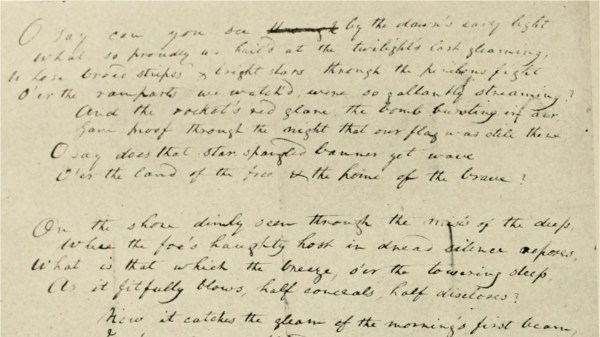 O say can you see through by the dawn's early light
What so proudly we hail'd at the twilight's last gleaming,
Whose broad stripes & bright stars through the perilous fight
O'er the ramparts we watch'd, were so gallantly streaming?
And the rocket's red glare, the bomb bursting in air
Gave proof through the night that our flag was still there
O say does that star spangled banner yet wave
O'er the land of the free & the home of the brave?
On the shore dimly seen through the mists of the deep,
Where the foe's haughty host in dread silence reposes,
What is that which the breeze, o'er the towering steep,
As it fitfully blows, half conceals, half discloses?
Now it catches the gleam of the morning's first beam,